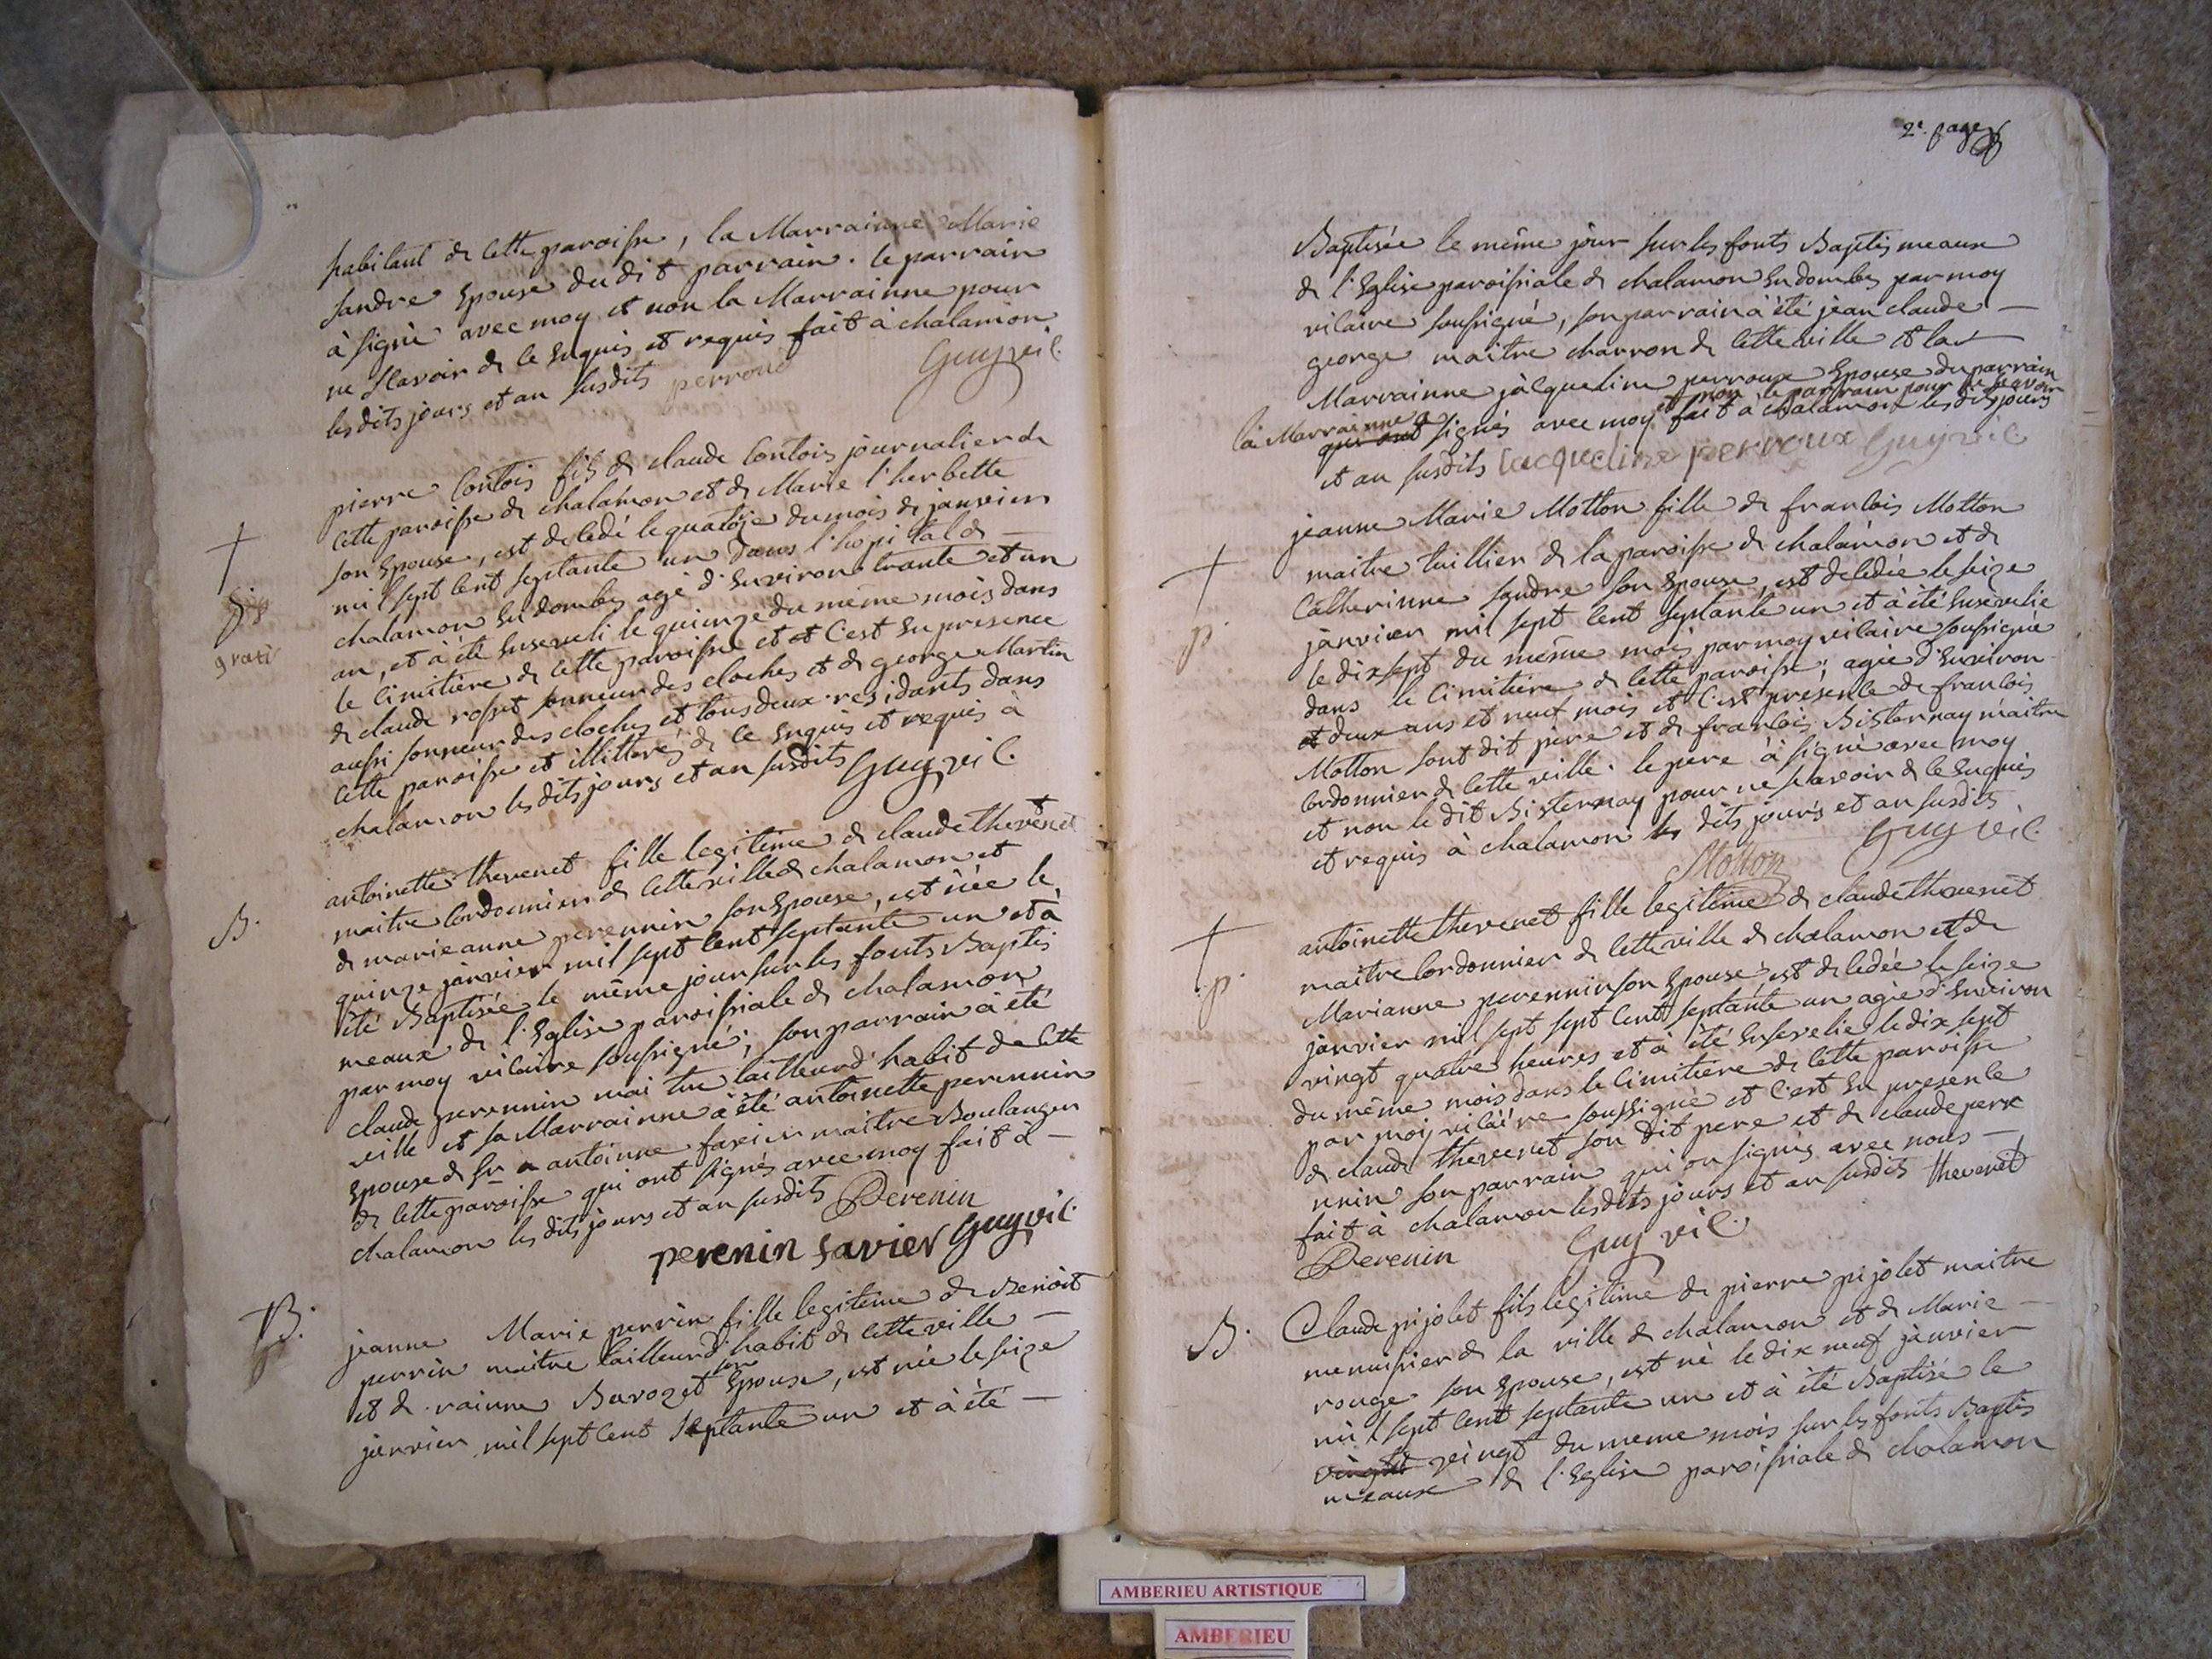 habitant de cette paroisse, la Marrainne Marie
sandre Epouse du dit parrain. le parrain
à signé avec moy et non la Marrainne pour
ne scavoir de ce enquis et requis fait à chalamon
les dits jours et an susdits perroud Guy vic.
pierre Contois fils de claude Contois journalier de
cette paroisse de chalamon et de Marie l'herbette
son Epouse, est decedé le quatorze du mois de janvier
mil sept cent septante un dans l'hopital de
chalamon en dombes agé d'environ trante et un
an, et à été enseveli le quinze du même mois dans
le cimitière de cette paroisse et et c'est en presence
de claude rosset sonneur des cloches et de george Martin
aussi sonneur des cloches et tous deux residants dans
cette paroisse et illitterés de ce enquis et requis à
chalamon les dits jours et an susdits Guy vic.
gratis
B.
antoinette thevenet fille legitime de claude thevenet
maitre Cordonnier de cette ville de chalamon et
de marieanne perennin son Epouse, est née le
quinze janvier mil sept cent septante un et à
été Baptisée le même jour sur les fonts Baptis
meaux de l'Eglise paroissiale de chalamon
par moy vicaire soussigné; son parrain à été
claude perennin maitre tailleur d'habit de cette
ville et sa Marrainne à été antoinette perennin
Epouse de Sr antoinne favier maitre Boulanger
de cette paroisse qui ont signés avec moy fait à
chalamon les dits jours et an susdits Perenin
perenin favier Guy vic.
B.
jeanne Marie perrin fille legitime de Benoit
perrin maitre tailleur d'habit de cette ville
et de rainne Barozet son Epouse, est née le seize
janvier mil sept cent septante un et à été
2e. page
Baptisée le même jour sur les fonts Baptismeaux
de l'Eglise paroissiale de chalamon en dombes par moy
vicaire soussigné, son parrain à été jean claude
george maître charron de cette ville et la
Marrainne jacqueline perroux Epouse du parrain
et non le parrain pour ne scavoir
la Marrainne a qui ont signés avec moy fait à chalamon les dits jours
et an susdits jacqueline perroux Guy vic
jeanne Marie Motton fille de francois Motton
maitre tuillier de la paroisse de chalamon et de
Catherinne sandre son Epouse, est decedée le seize
janvier mil sept cent septante un et à été ensevelie
le dix sept du même mois par moy vicaire soussigné
dans le cimitière de cette paroisse; agée d'environ
et deux ans et neuf mois et c'est presence de francois
Motton sont dit pere et de francois Bisternay maitre
Cordonnier de cette ville. le pere à signé avec moy
et non le dit Bisternay pour ne scavoir de ce enquis
et requis à chalamon les dits jours et an susdits
Motton Guy vic.
p.
antoinette thevenet fille legitime de claude thevenet
maitre Cordonnier de cette ville de chalamon et de
Marianne perennin son Epouse, est decedée le seize
janvier mil sept sept cent septante un agée d'environ
vingt quatre heures et à été ensevelie le dix sept
du même mois dans le cimitiere de cette paroisse
par moy vicaire soussigné et c'est en presence
de claude thevenet son dit pere et de claude pere
nnin son parrain qui on signés avec nous
fait à chalamon les dits jours et an susdits thevenet
Perenin Guy vic
p.
B.
Claude pijolet fils legitime de pierre pijolet maitre
menuisier de la ville de chalamon et de Marie
rouge son Epouse, est né le dix neuf janvier
mil sept cent septante un et à été Baptisé le
vingt vingt du meme mois sur les fonts Baptis
meaux de l'Eglise paroissiale de chalamon
AMBERIEU ARTISTIQUE
AMBERIEU